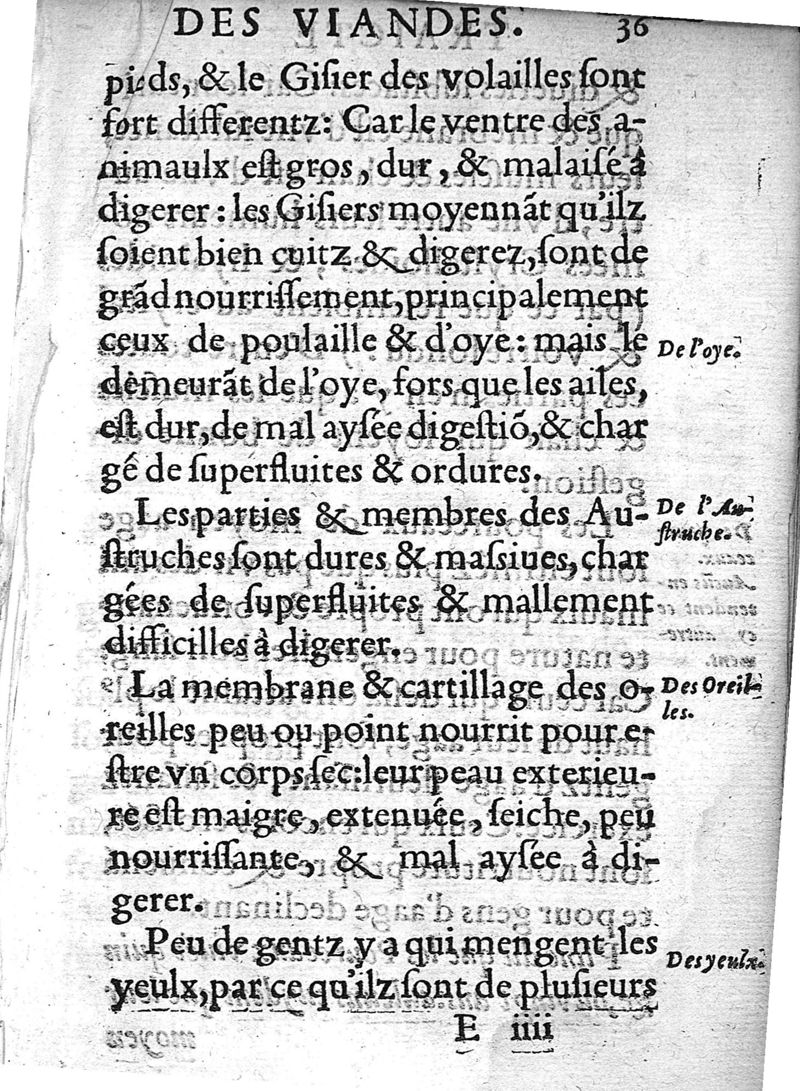 DES VIANDES. 36
pieds, & le Gisier des volailles sont
fort differentz: Car le ventre des a-
nimaulx est gros, dur, & malaisé à
digerer : les Gisiers moyennãt qu'ilz
soient bien cuitz & digerez, sont de
grãd nourrissement, principalement
ceux de poulaille & d'oye : mais le
De l'oye.
demeurãt de l'oye, fors que les ailes,
est dur, de mal aysée digestiõ, & char
gé de superfluites & ordures.
Les parties & membres des Au-
De l'Au-
struches sont dures & massiues, char
struche.
gées de superfluites & mallement
difficilles à digerer.
La membrane & cartillage des o-
Des Oreil-
les.
reilles peu ou point nourrit pour e-
stre vn corps sec: leur peau exterieu-
re est maigre, extenuée, seiche, peu
nourrissante, & mal aysée à di-
gerer.
Peu de gentz y a qui mengent les
Des yeulx.
yeulx, par ce qu'ilz sont de plusieurs
E iiii